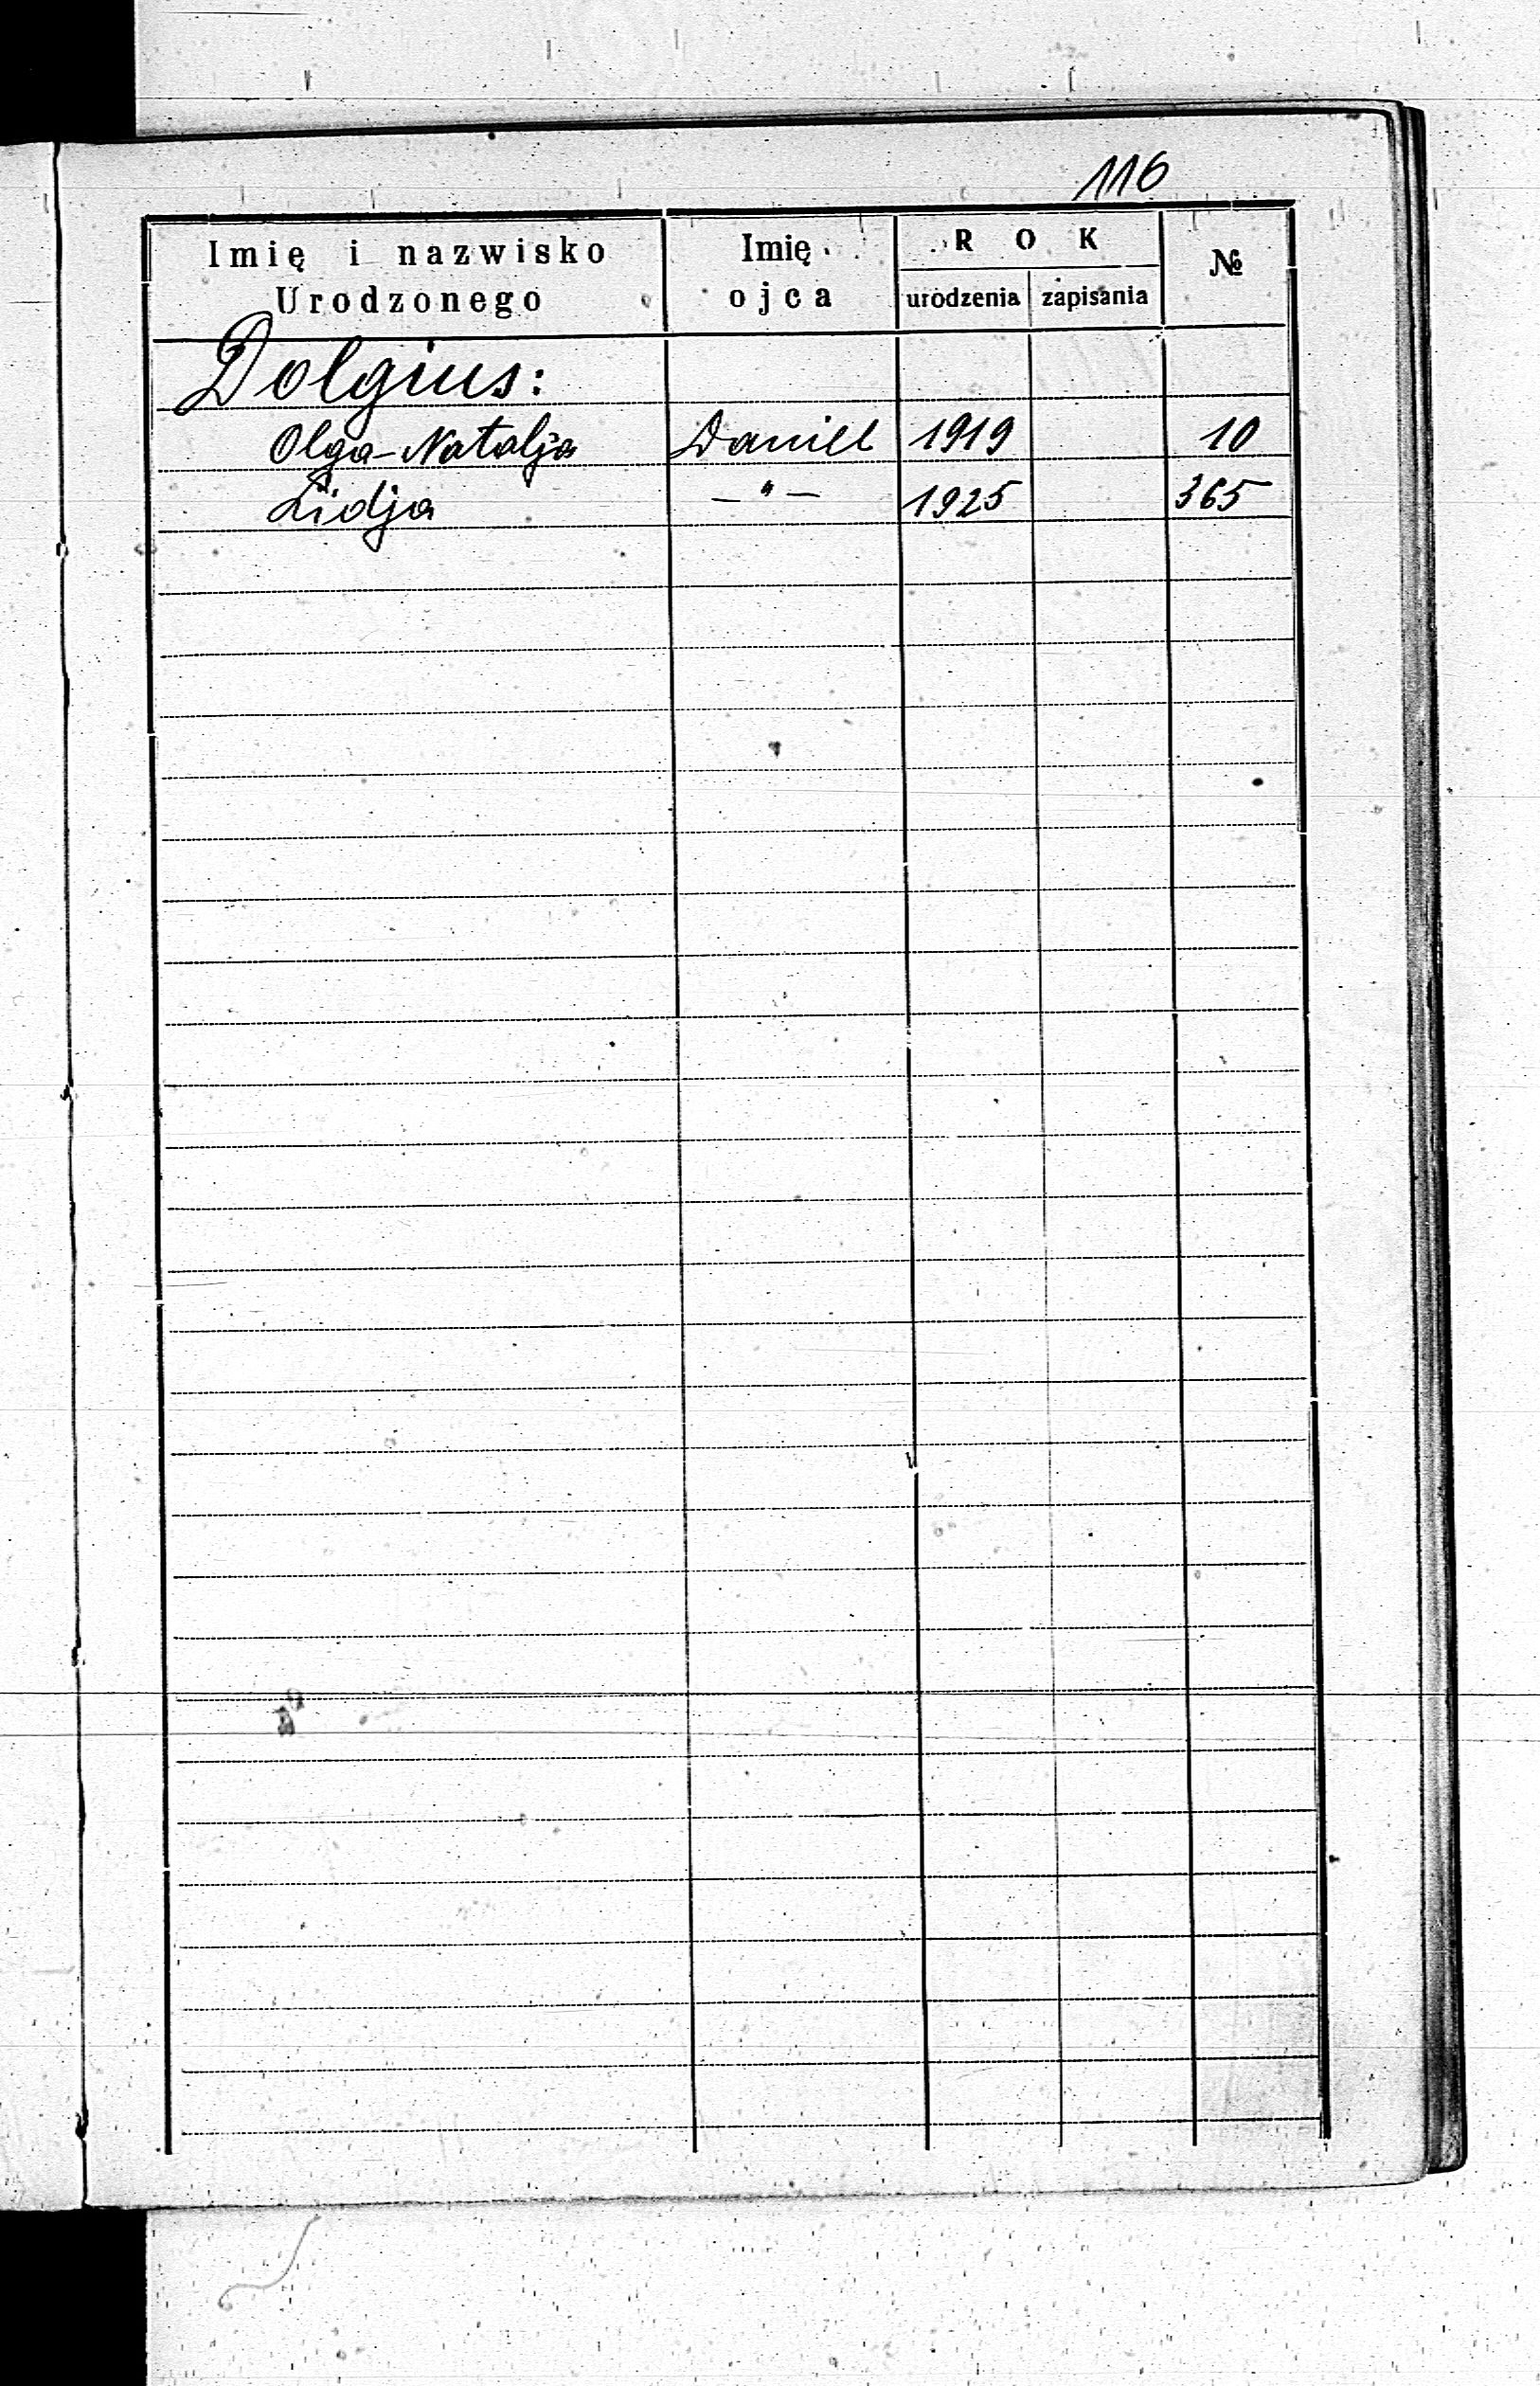 116
Imię i nazwisko Urodzonego | Imię ojca | ROK urodzenia | zapisania | №
Dolgius:
Olga-Natalja | Daniel | 1919 | | 10
Lidja | —"— | 1925 | | 365